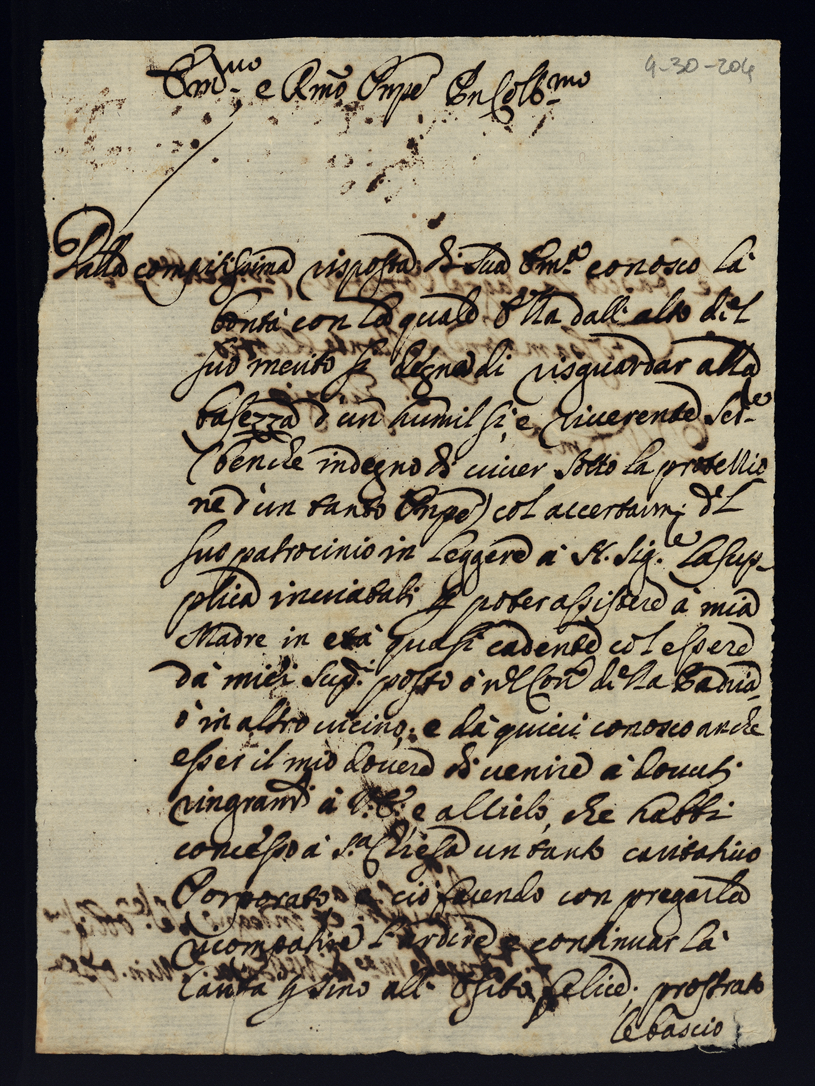 9-30-204
Em.mo e Rmo Pnpe Pn Col.mo
Dalla compitissima risposta di sua Em.a conosco la
bontà con la quale E'lla dall' alto del
suo merito si degna di risguardar alla
basezza d'un humilss.i e riverente Ser.e
(benche indegno di viver sotto la protettio
ne d'un tanto Pnpe) col accertarmi del
suo patrocinio in leggere a N. Sig.e la sup-
plica inviatali p poter assistere a mia
Madre in età quasi cadente col essere
da miei Sup.i posto ò nel Con.o della
ò in altro vicino; e da quivi conosco anche
esser il mio dovere di venire a dovuti
ringram.ti à V. E. e al Cielo, che habbi
concesso a S.a Chiesa un tanto caritativo
Porporato, e ciò facendo con pregarla
à compatire l'ardire e continuar la
carità p sino all' esito felice; prostrato
le bascio